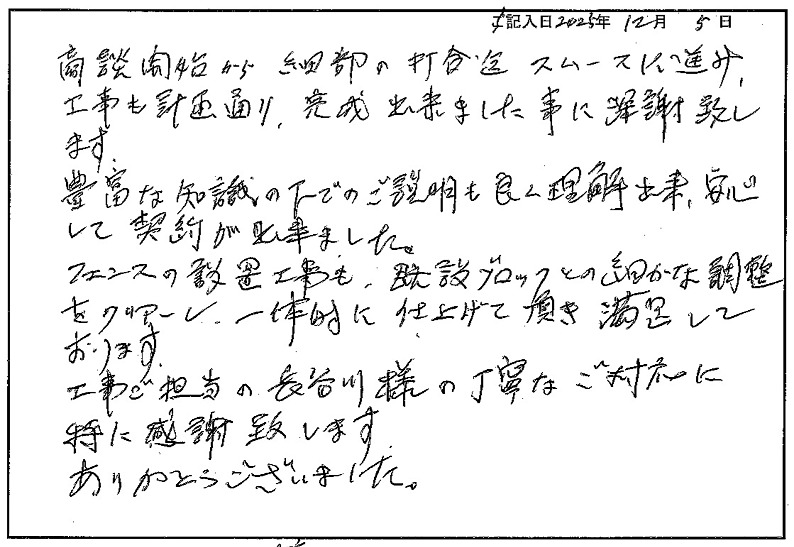 記入日2025年 12月 5日
商談開始から 細部の打合迄 スムースに進み、
工事も計画通り、完成出来ました事に深謝致し
ます。
豊富な知識の下でのご説明も良く理解出来、安心
して契約が出来ました。
フェンスの設置工事も、既設ブロックとの細かな調整
をクリアーし、一体的に仕上げて頂き満足して
おります。
工事ご担当の長谷川様の丁寧なご対応に
特に感謝致します
ありがとうございました。